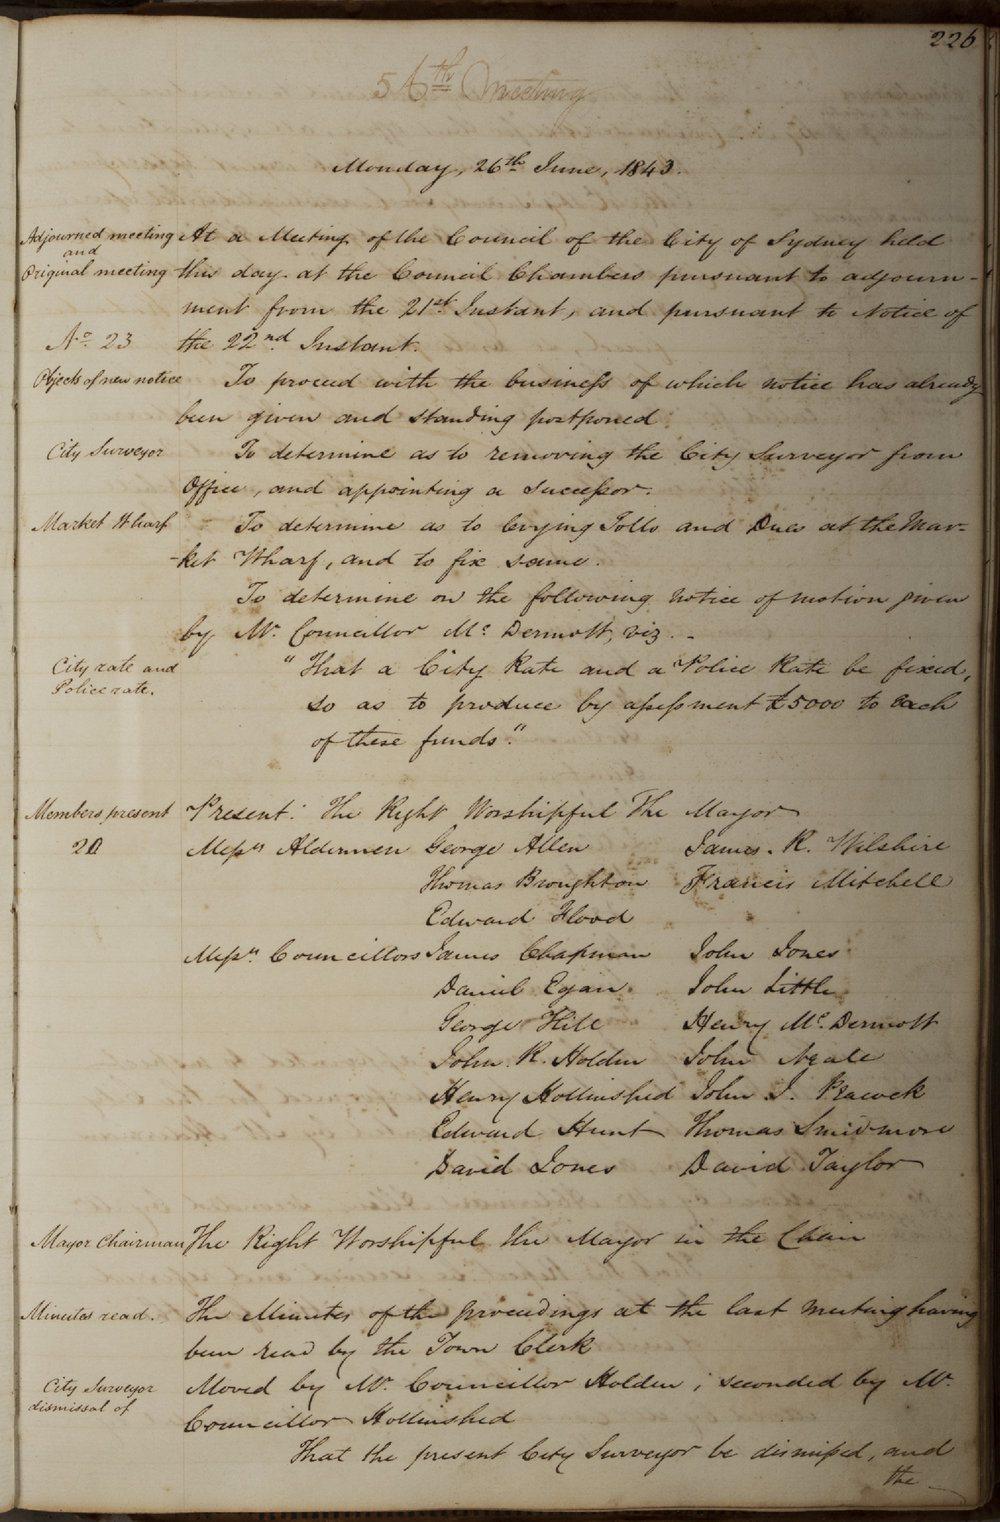 226
56th Meeting
Monday, 26th June, 1843.
Adjourned meeting
and
Original meeting
No. 23
At a Meeting of the Council of the City of Sydney held
this day at the Council Chambers pursuant to adjourn-
ment from the 21st Instant, and pursuant to Notice of
the 22nd Instant.
Objects of new notice
To proceed with the business of which notice has already
been given and standing postponed.
City Surveyor
To determine as to removing the City Surveyor from
Office, and appointing a Successor.
Market Wharf
To determine as to levying Tolls and Dues at the Mar-
-ket Wharf, and to fix same.
To determine on the following notice of motion given
by Mr. Councillor Mc. Dermott, viz. -
City rate and
Police rate.
"That a City Rate and a Police Rate be fixed,
so as to produce by assessment £5000 to each
of these funds."
Members present
20
Present: The Right Worshipful The Mayor
Messrs Aldermen George Allen James. R. Wilshire
Thomas Broughton Francis Mitchell
Edward Flood
Messrs. Councillors James Chapman John Jones
Daniel Egan. John Little
George Hill Henry Mc. Dermott
John. R. Holden John Neale
Henry Hollinshed John J. Peacock
Edward Hunt Thomas Smidmore
David Jones David Taylor
Mayor Chairman
The Right Worshipful the Mayor in the Chair
Minutes read.
The Minutes of the proceedings at the last meeting having
been read by the Town Clerk
City Surveyor
dismissal of
Moved by Mr. Councillor Holden; seconded by Mr.
Councillor Hollinshed
That the present City Surveyor be dismissed, and
the